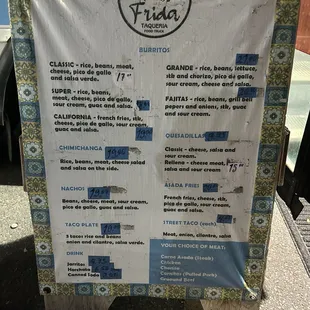 Frida
TAQUERIA
FOOD TRUCK
BURRITOS
CLASSIC - rice, beans, meat,
cheese, pico de gallo
and salsa verde.
17
SUPER - rice, beans,
meat, cheese, pico de gallo,
sour cream, guac and salsa.
CALIFORNIA - french fries, steak,
cheese, pico de gallo, sour cream,
guac and salsa.
CHIMICHANGA
Rice, beans, meat, cheese salad
and salsa on the side.
NACHOS
Beans, cheese, meat, sour cream,
pico de gallo, guac and salsa.
TACO PLATE
rice and beans
onion and cilantro, salsa verde.
DRINK
Jarritos
Horchata
Canned Soda
GRANDE - rice, beans, lettuce,
stk and chorizo, pico de gallo,
sour cream, guac and salsa.
FAJITAS - rice, beans, grill bell
peppers and onions, stk, guac
and sour cream.
QUESADILLAS
Classic - cheese, salsa
and sour cream.
Rellena - cheese, meat,
salsa and sour cream.
15
ASADA FRIES
French fries, cheese, stk,
pico de gallo, sour cream,
guac and salsa.
STREET TACO (each)
Meat, onion, cilantro,
YOUR CHOICE OF MEAT:
Carne Asada (Steak)
Chicken
Chorizo
Carnitas (Pulled Pork)
Ground Beef